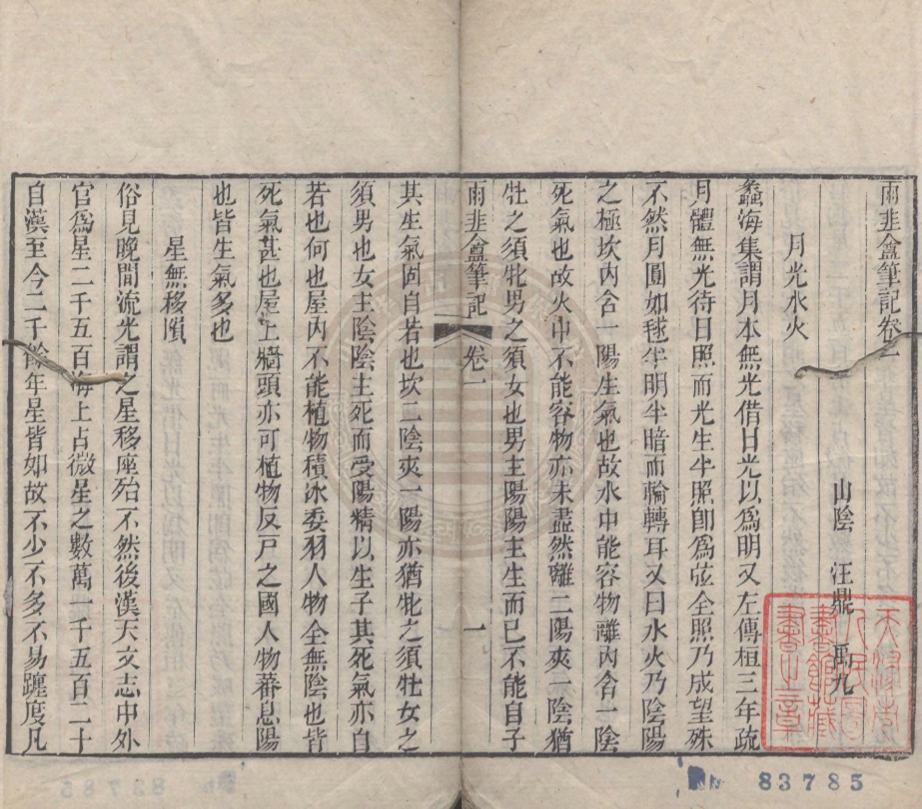 雨韭盦筆記卷一
山陰 汪鼎 禹九
月光水火
蠡海集謂月本無光借日光以爲明又左傳桓三年疏
月體無光待日照而光生半照卽爲弦全照乃成望殊
不然月圓如毬半明半暗而輪轉耳又曰水火乃陰陽
之極坎內含一陽生氣也故水中能容物離內含一陰
死氣也故火中不能容物亦未盡然離二陽夾一陰猶
牡之須牝男之須女也男主陽陽主生而已不能自子
雨韭盦筆記 卷一 一
其生氣固自若也坎二陰夾一陽亦猶牝之須牡女之
須男也女主陰陰主死而受陽精以生子其死氣亦自
若也何也屋內不能植物積冰委羽人物全無陰也皆
死氣甚也屋上牆頭亦可植物反戸之國人物蕃息陽
也皆生氣多也
星無移隕
俗見晚間流光謂之星移座殆不然後漢天文志中外
官爲星二千五百海上占微星之數萬一千五百二十
自漢至今二千餘年星皆如故不少不多不易躔度凡
天津市
人民圖
書館藏
書之章
83785